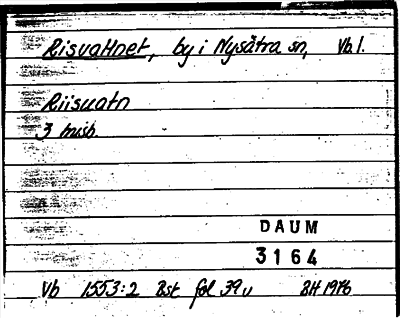 Risvattnet, by i Nysätra sn, Vb l.
Riisuatn
3 mish.
DAUM
3164
Vb 1553:2 Bst fol 39v BH 1976